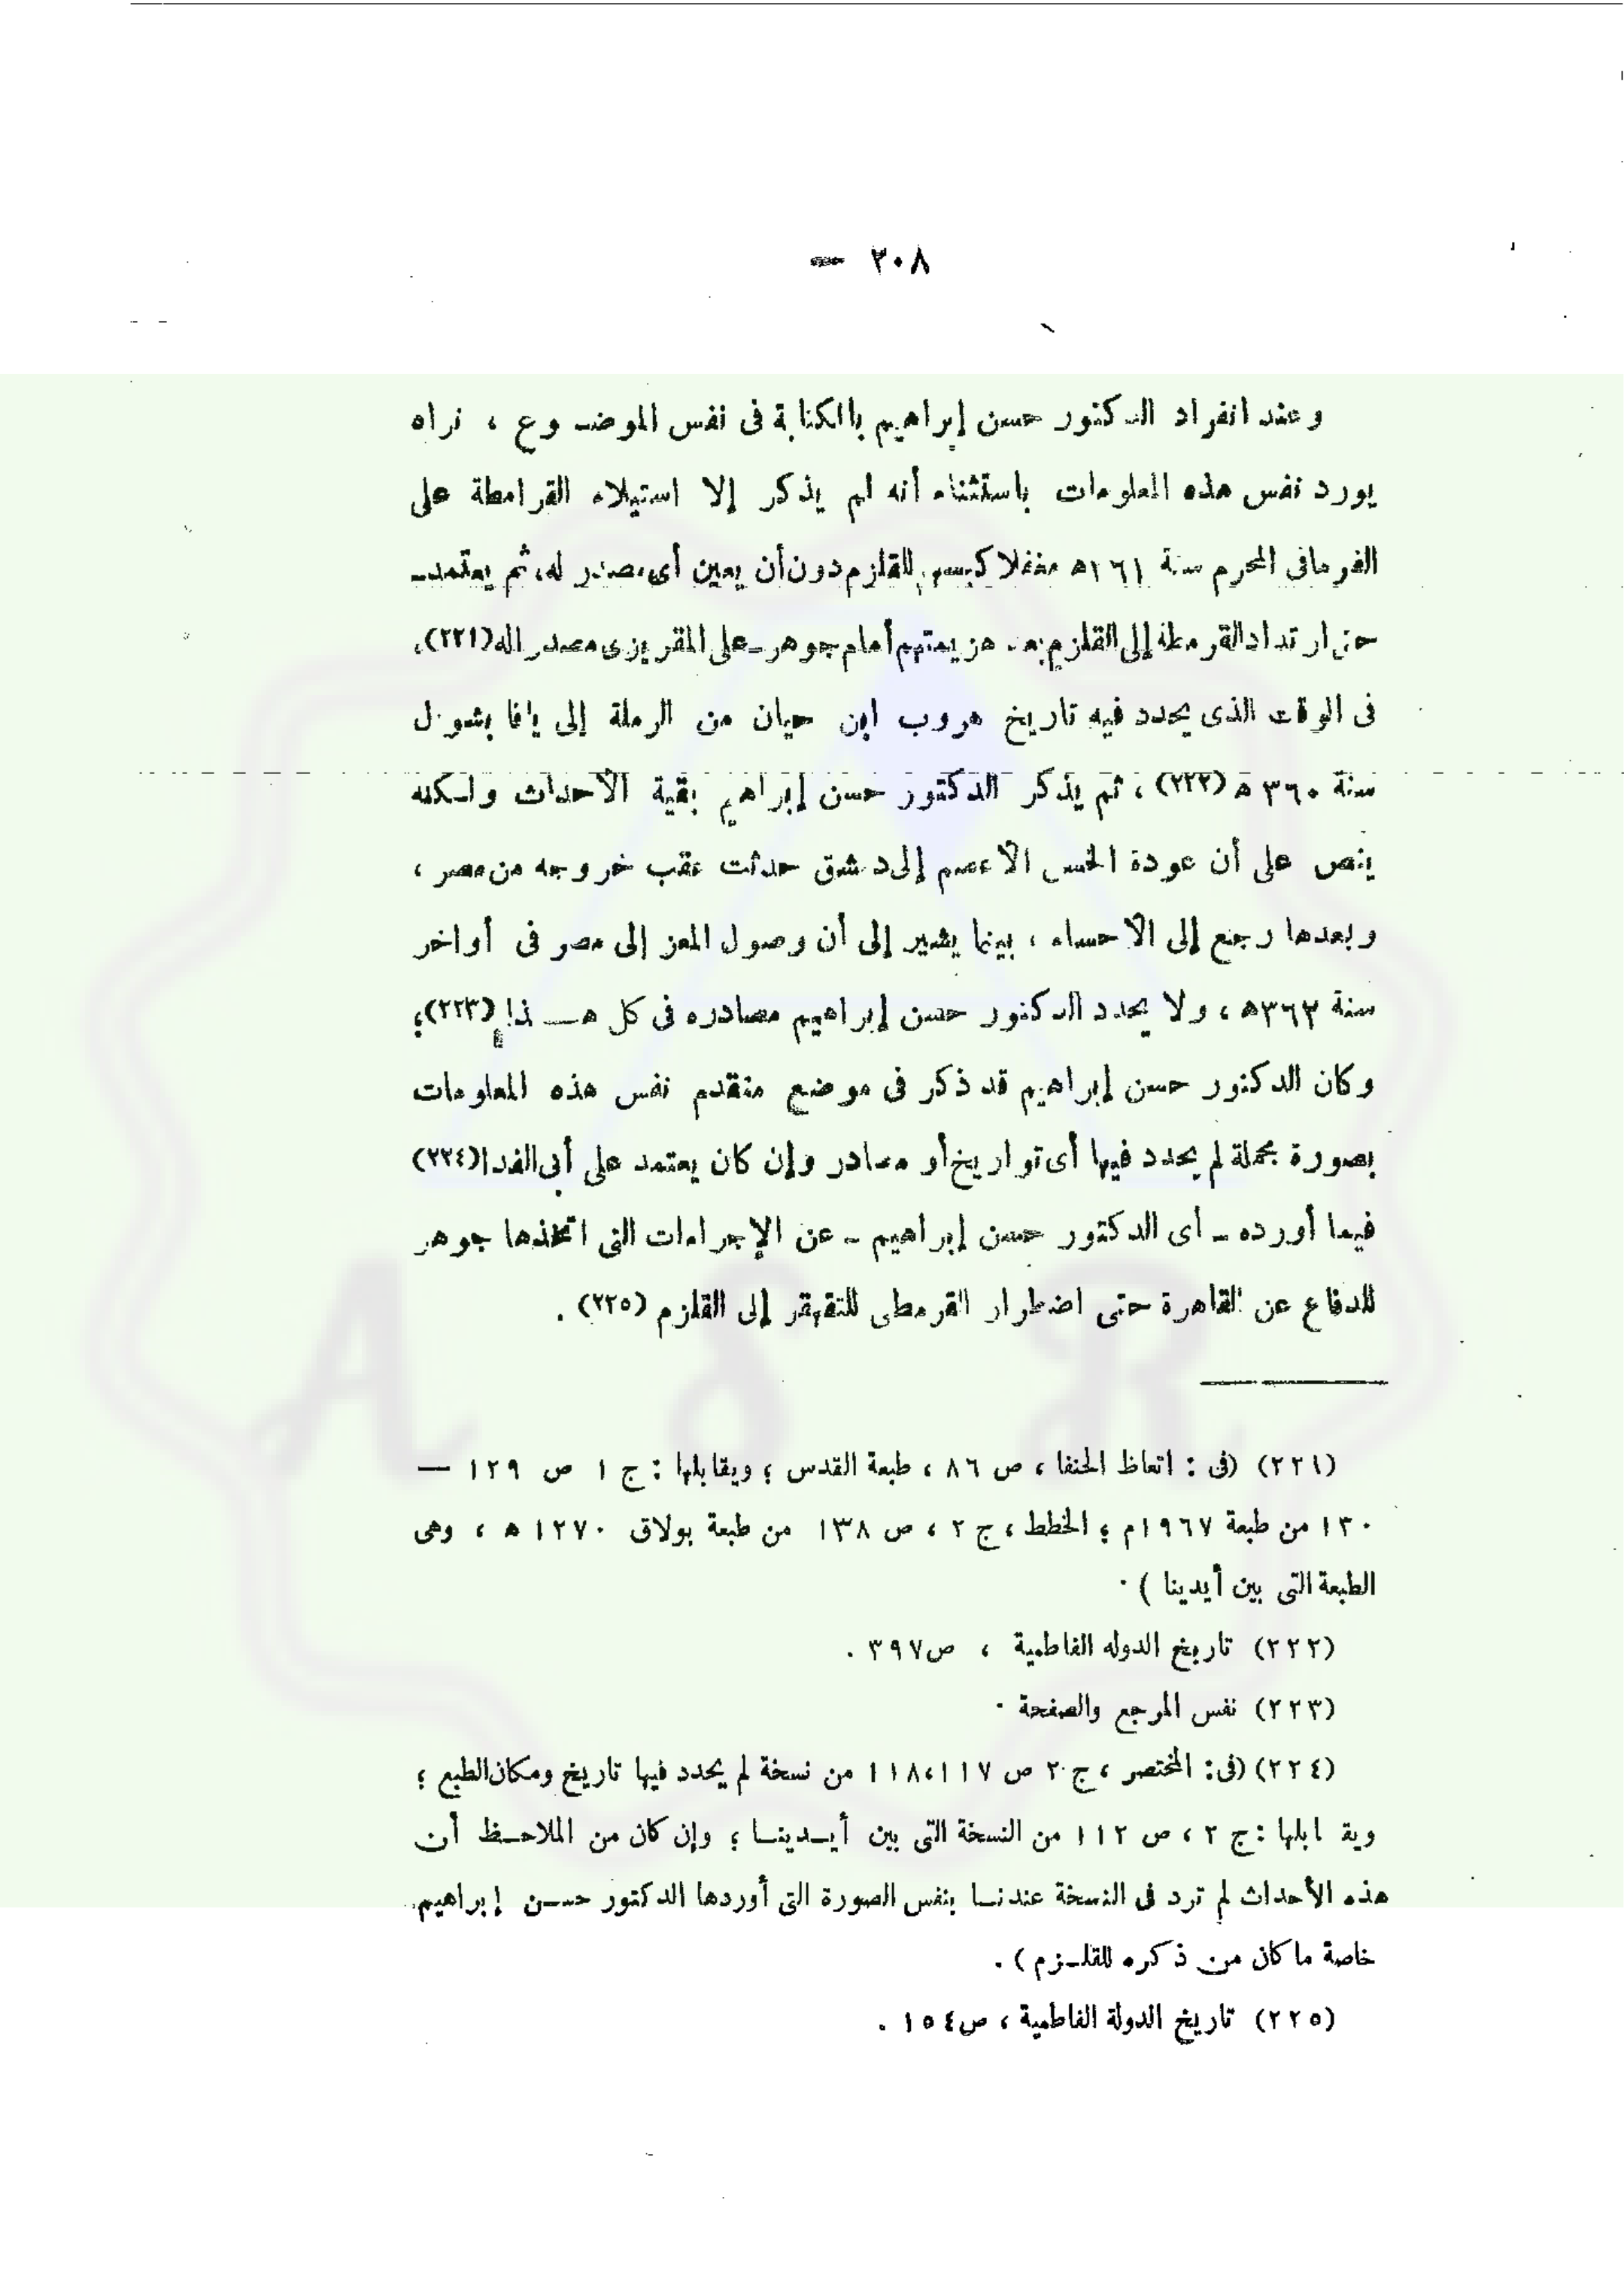 ٢٠٨ —
وعند انفراد الدكتور حسن إبراهيم بالكتابة فى نفس الموضوع ، نراه
يورد نفس هذه المعلومات باستثناء أنه لم يذكر إلا استيلاء القرامطة على
الفرما فى المحرم سنة ٣٦١ﻫ مغفلا كبسهم للقلزم دون أن يعين أى مصدر له، ثم يعتمد ـ
عن ارتداد القرمطة إلى القلزم بعد هزيمتهم أمام جوهر ـ على المقريزى مصدرا له (٢٢١)،
فى الوقت الذى يحدد فيه تاريخ هروب ابن حيان من الرملة إلى يافا بشوال
سنة ٣٦٠ ﻫ (٢٢٢) ، ثم يذكر الدكتور حسن إبراهيم بقية الأحداث ولكنه
ينص على أن عودة الحسن الأعصم إلى دمشق حدثت عقب خروجه من مصر ،
وبعدها رجع إلى الأحساء ، بينما يشير إلى أن وصول المعز إلى مصر فى أواخر
سنة ٣٦٢ﻫ ، ولا يحدد الدكتور حسن إبراهيم مصادره فى كل هــذا (٢٢٣)؛
وكان الدكتور حسن إبراهيم قد ذكر فى موضع متقدم نفس هذه المعلومات
بصورة مجملة لم يحدد فيها أى تواريخ أو مصادر وإن كان يعتمد على أبى الفدا (٢٢٤)
فيما أورده ـ أى الدكتور حسن إبراهيم ـ عن الإجراءات التى اتخذها جوهر
للدفاع عن القاهرة حتى اضطرار القرمطى للتقهقر إلى القلزم (٢٢٥) .
(٢٢١) (فى : اتعاظ الحنفا ، ص ٨٦ ، طبعة القدس ؛ ويقابلها : ج ١ ص ١٢٩ —
١٣٠ من طبعة ١٩٦٧م ؛ الخطط ، ج ٢ ، ص ١٣٨ من طبعة بولاق ١٢٧٠ ﻫ ، وهى
الطبعة التى بين أيدينا ) .
(٢٢٢) تاريخ الدوله الفاطمية ، ص٣٩٧ .
(٢٢٣) نفس المرجع والصفحة .
(٢٢٤) (فى : المختصر ، ج ٢ ص ١١٧ ، ١١٨ من نسخة لم يحدد فيها تاريخ ومكان الطبع ؛
ويقابلها : ج ٢ ، ص ١١٢ من النسخة التى بين أيـدينـا ؛ وإن كان من الملاحـظ أن
هذه الأحداث لم ترد فى النسخة عندنـا بنفس الصورة التى أوردها الدكتور حسـن إبراهيم
خاصة ما كان من ذكره للقلـزم ) .
(٢٢٥) تاريخ الدولة الفاطمية ، ص١٥٤ .
A S R